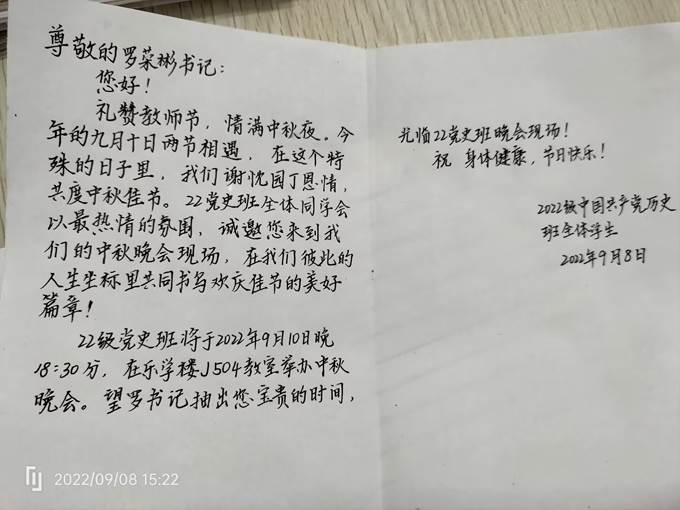 尊敬的罗菜彬书记：
您好！
礼赞教师节，情满中秋夜。今
年的九月十日两节相遇，在这个特
殊的日子里，我们谢忱园丁恩情，
共度中秋佳节。22党史班全体同学会
以最热情的氛围，诚邀您来到我
们的中秋晚会现场，在我们彼此的
人生坐标里共同书写欢庆佳节的美好
篇章！
22级党史班将于2022年9月10日晚
18:30分，在乐学楼J504教室举办中秋
晚会。望罗书记抽出您宝贵的时间，
光临22党史班晚会现场！
祝 身体健康，节日快乐！
2022级中国共产党历史
班全体学生
2022年9月8日
2022/09/08 15:22